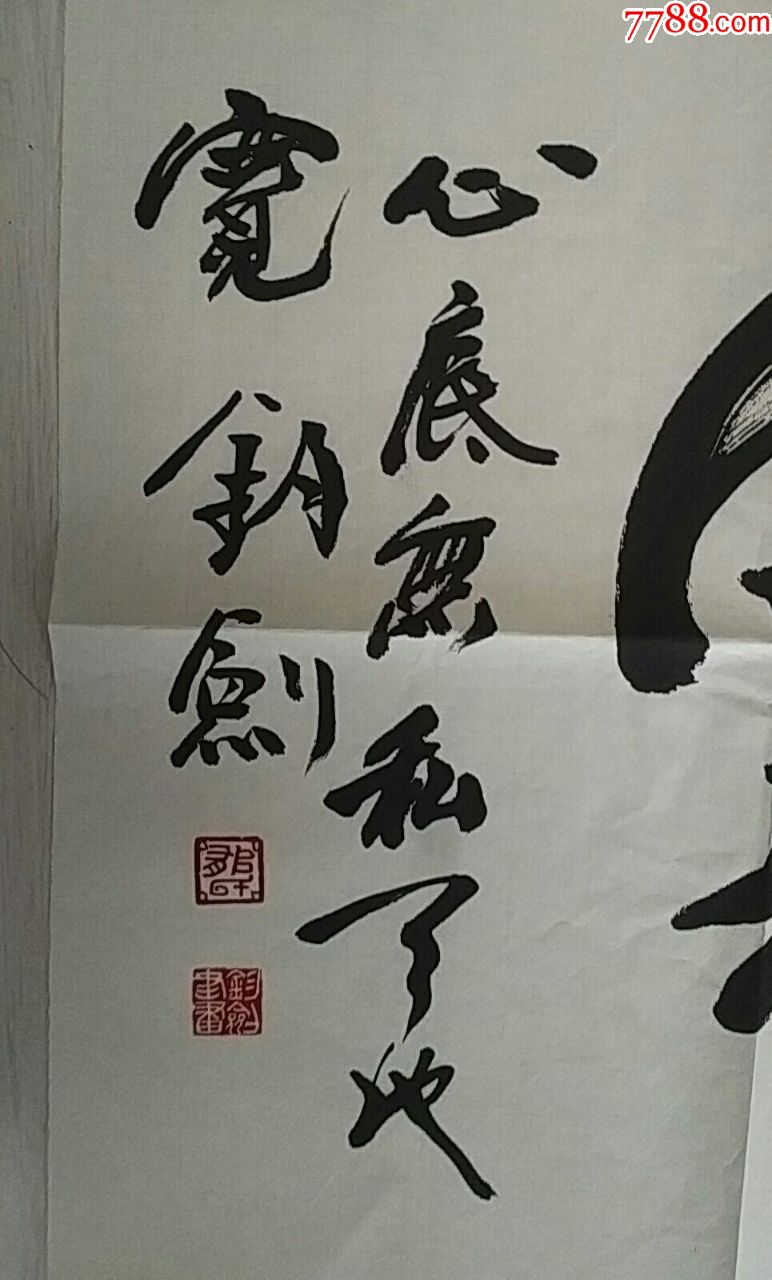 7788.com
心底無私天地
寬 鈞劍
鈞劍書畫